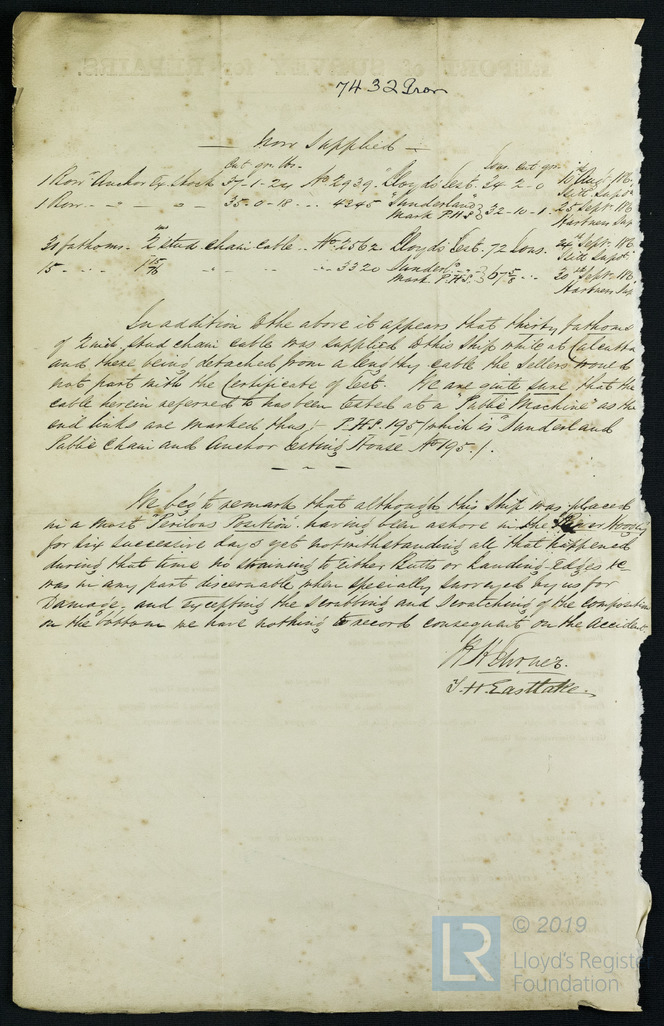 7432 Iron
Now Supplied
Cwt qrs lbs. Tons. Cwt. qrs
1 Bowr Anchor Ex Stock 37-1-24 No 2939. Lloyds Test. 34-2-0
1 Bowr - 35-0-18 .. 4345 Sunderland
Mark P.H.S } 32-10-1. 25 Sept. 186
Hartness Sup
30 fathoms. 2 in stud chain cable .. No 2562 Lloyds Test. 72 Tons. 24 Sept. 186
15 - .. 1 15/16 .. 3320 Sunderld
Mark P.H.S. } 67 5/8 .. 20th Sept. 186
Hartness Sup
In addition to the above it appears that thirty fathoms
of 2 inch stud chain cable was supplied to this ship while at Calcutta
and these being detached from a lengthy cable the Sellers would
not part with the Certificate of Test. We are quite sure that the
cable herein referred to has been tested at a "Public Machine" as the
end links are marked thus, P.H.S. 195 / which is "Sunderland
Public Chain and Anchor Testing House No 195 /.
We beg to remark that although this ship was placed
in a most "Perilous Position" having been ashore in the River Hoogly
for six successive days yet notwithstanding all that happened
during that time no straining to either Butts or Landing Edges &c
was in any part discernable when specially surveyed by us for
Damage, and excepting the scrubbing and scratching of the composition
on the bottom we have nothing to record consequent on the accident.
T. H. Eastlake.
REPORT of SURVEY for REPAIRS.
LR
© 2019
Lloyd's Register
Foundation